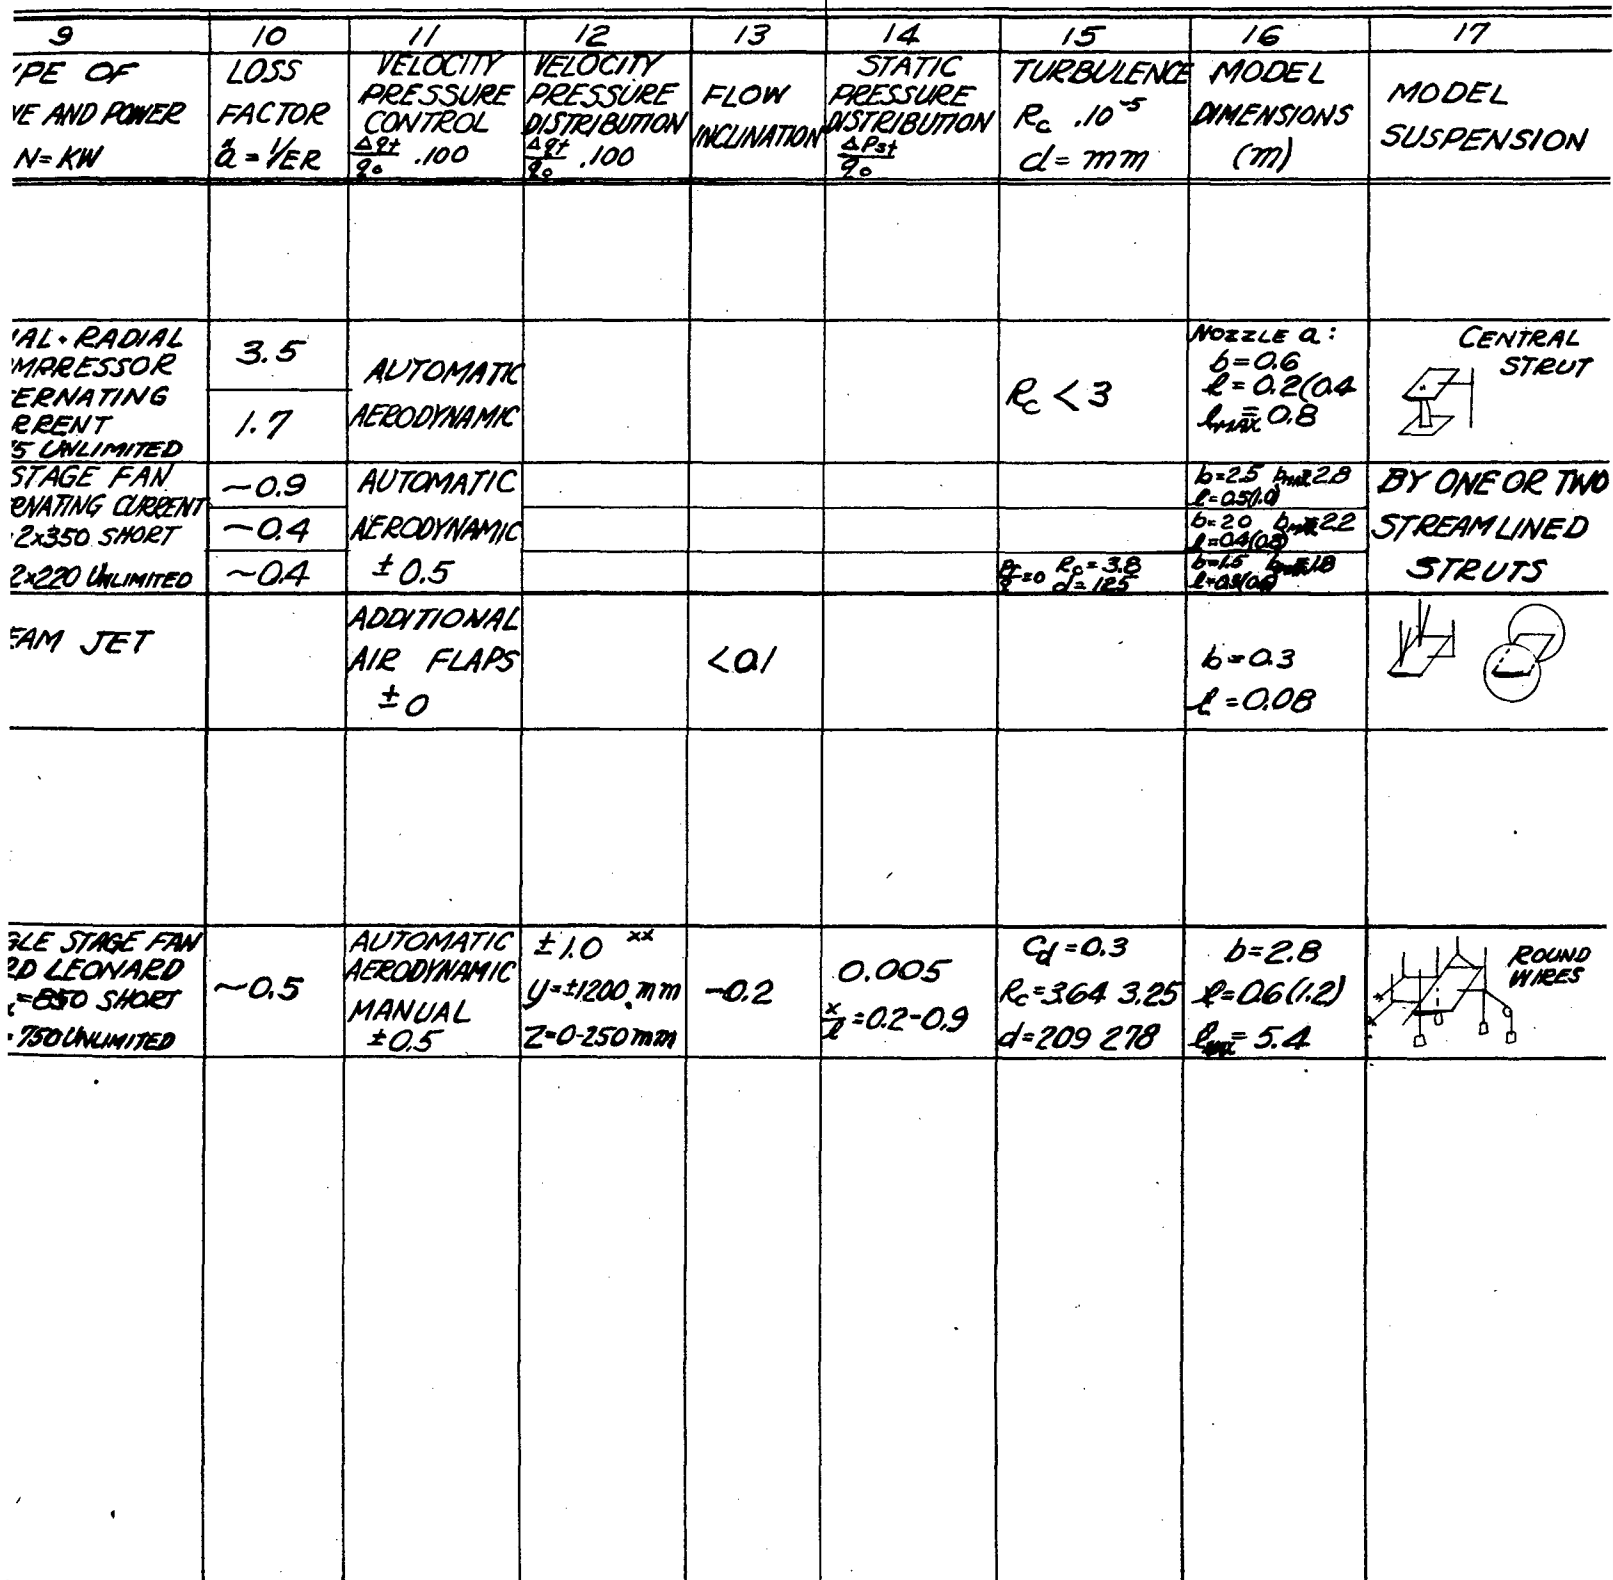 9 10 11 12 13 14 15 16 17
'PE OF
VE AND POWER
N=KW
LOSS
FACTOR
å = 1/ER
VELOCITY
PRESSURE
CONTROL
Δqt/q₀ .100
VELOCITY
PRESSURE
DISTRIBUTION
Δqt/q₀ .100
FLOW
INCLINATION
STATIC
PRESSURE
DISTRIBUTION
ΔPst/q₀
TURBULENCE
Rc .10⁻⁵
d = mm
MODEL
DIMENSIONS
(m)
MODEL
SUSPENSION
IAL + RADIAL
MPRESSOR
ERNATING
RRENT
5 UNLIMITED
3.5
1.7
AUTOMATIC
AERODYNAMIC
Rc < 3
NOZZLE a:
b = 0.6
l = 0.2(0.4
lMAX = 0.8
CENTRAL
STRUT
STAGE FAN
RNATING CURRENT
2x350 SHORT
2x220 UNLIMITED
~0.9
~0.4
~0.4
AUTOMATIC
AERODYNAMIC
± 0.5
Rc = 3.8
d = 125
b=2.5 bmax=2.8
l=0.5(1.0)
b=2.0 bmax=2.2
l=0.4(0.8)
b=1.5 bmax=1.8
BY ONE OR TWO
STREAMLINED
STRUTS
EAM JET
ADDITIONAL
AIR FLAPS
± 0
<0.1
b=0.3
l=0.08
GLE STAGE FAN
RD LEONARD
=850 SHORT
=750 UNLIMITED
~0.5
AUTOMATIC
AERODYNAMIC
MANUAL
±0.5
±1.0 xx
y=±1200 mm
Z=0-250 mm
-0.2
0.005
x/l = 0.2-0.9
Cd = 0.3
Rc = 3.64 3.25
d = 209 278
b=2.8
l=0.6(1.2)
lmax = 5.4
ROUND
WIRES